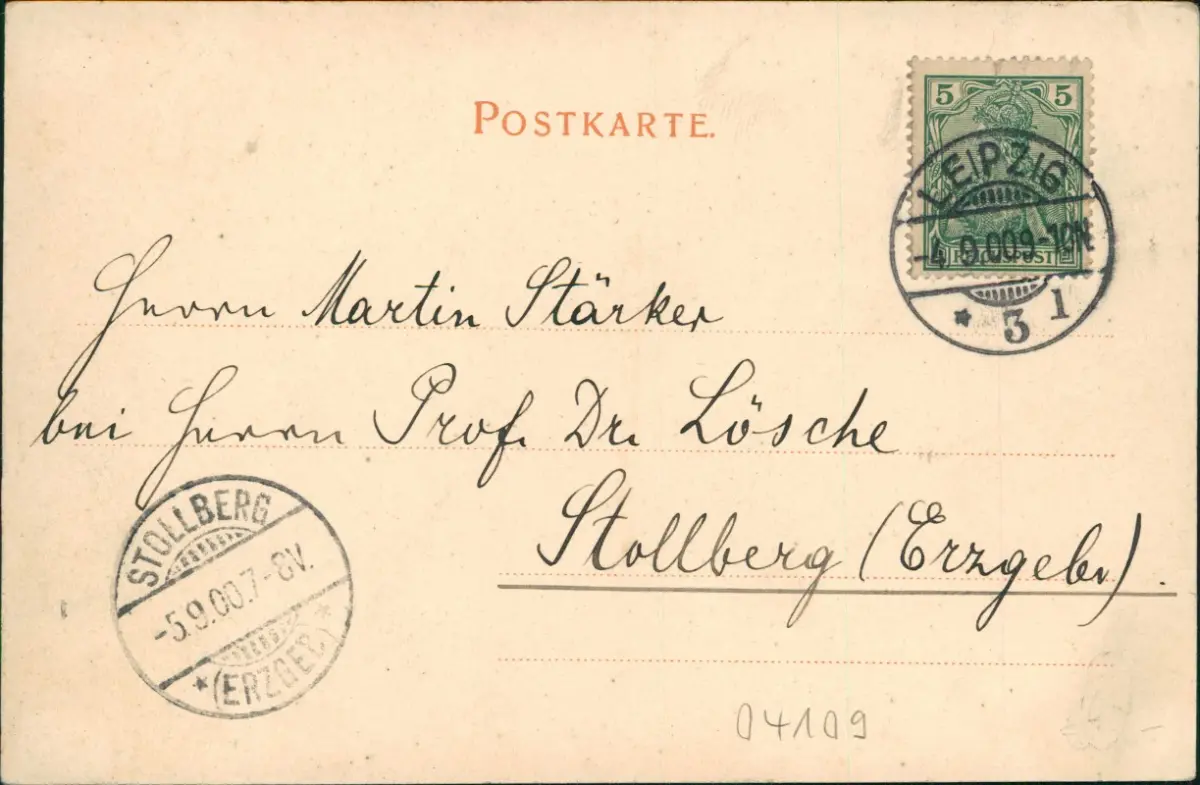 POSTKARTE.
5 5
REICHSPOST
LEIPZIG
-4.9.00 9-10N
* 3 1
Herrn Martin Stärker
bei Herrn Prof. Dr. Lösche
Stollberg (Erzgeb.)
STOLLBERG
-5.9.00.7-8V.
* (ERZGEB.) *
04109